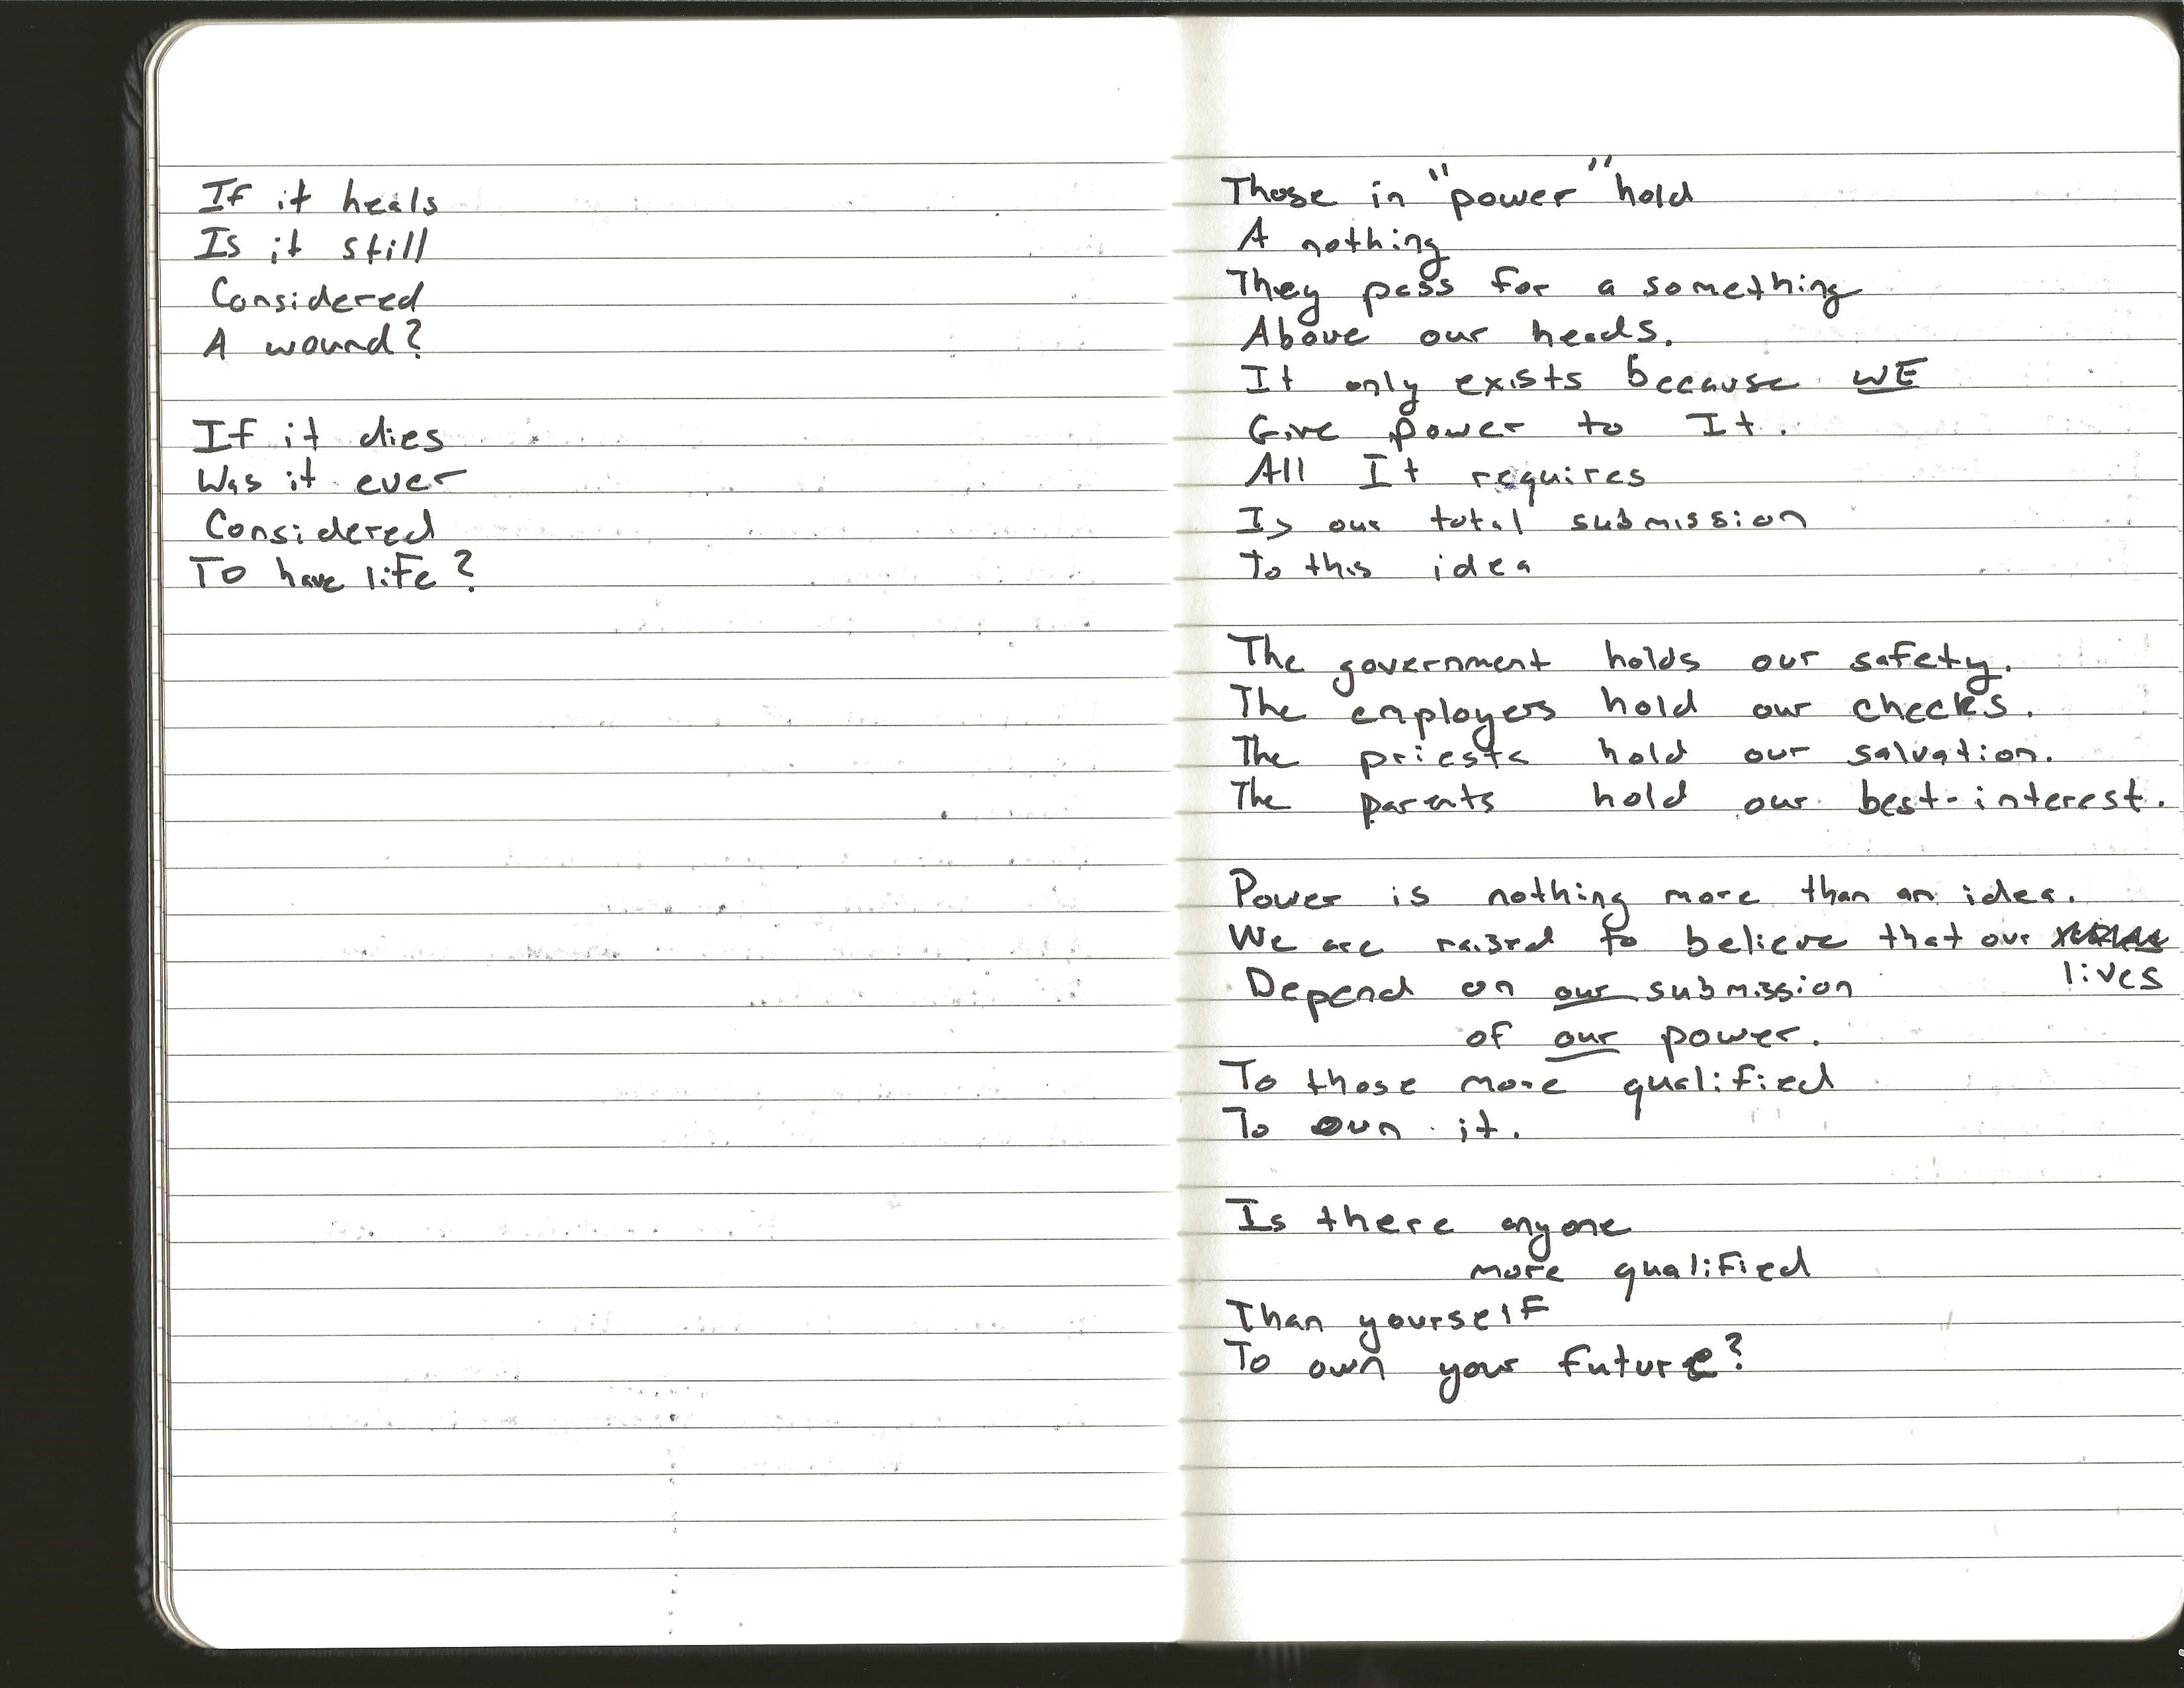 If it heals
Is it still
Considered
A wound?
If it dies
Was it ever
Considered
To have life?
Those in "power" hold
A nothing
They pass for a something
Above our heads.
It only exists because WE
Give power to It.
All It requires
Is our total submission
To this idea
The government holds our safety.
The employers hold our checks.
The priests hold our salvation.
The parents hold our best-interest.
Power is nothing more than an idea.
We are raised to believe that our
lives
Depend on our submission
of our power.
To those more qualified
To own it.
Is there anyone
more qualified
Than yourself
To own your future?